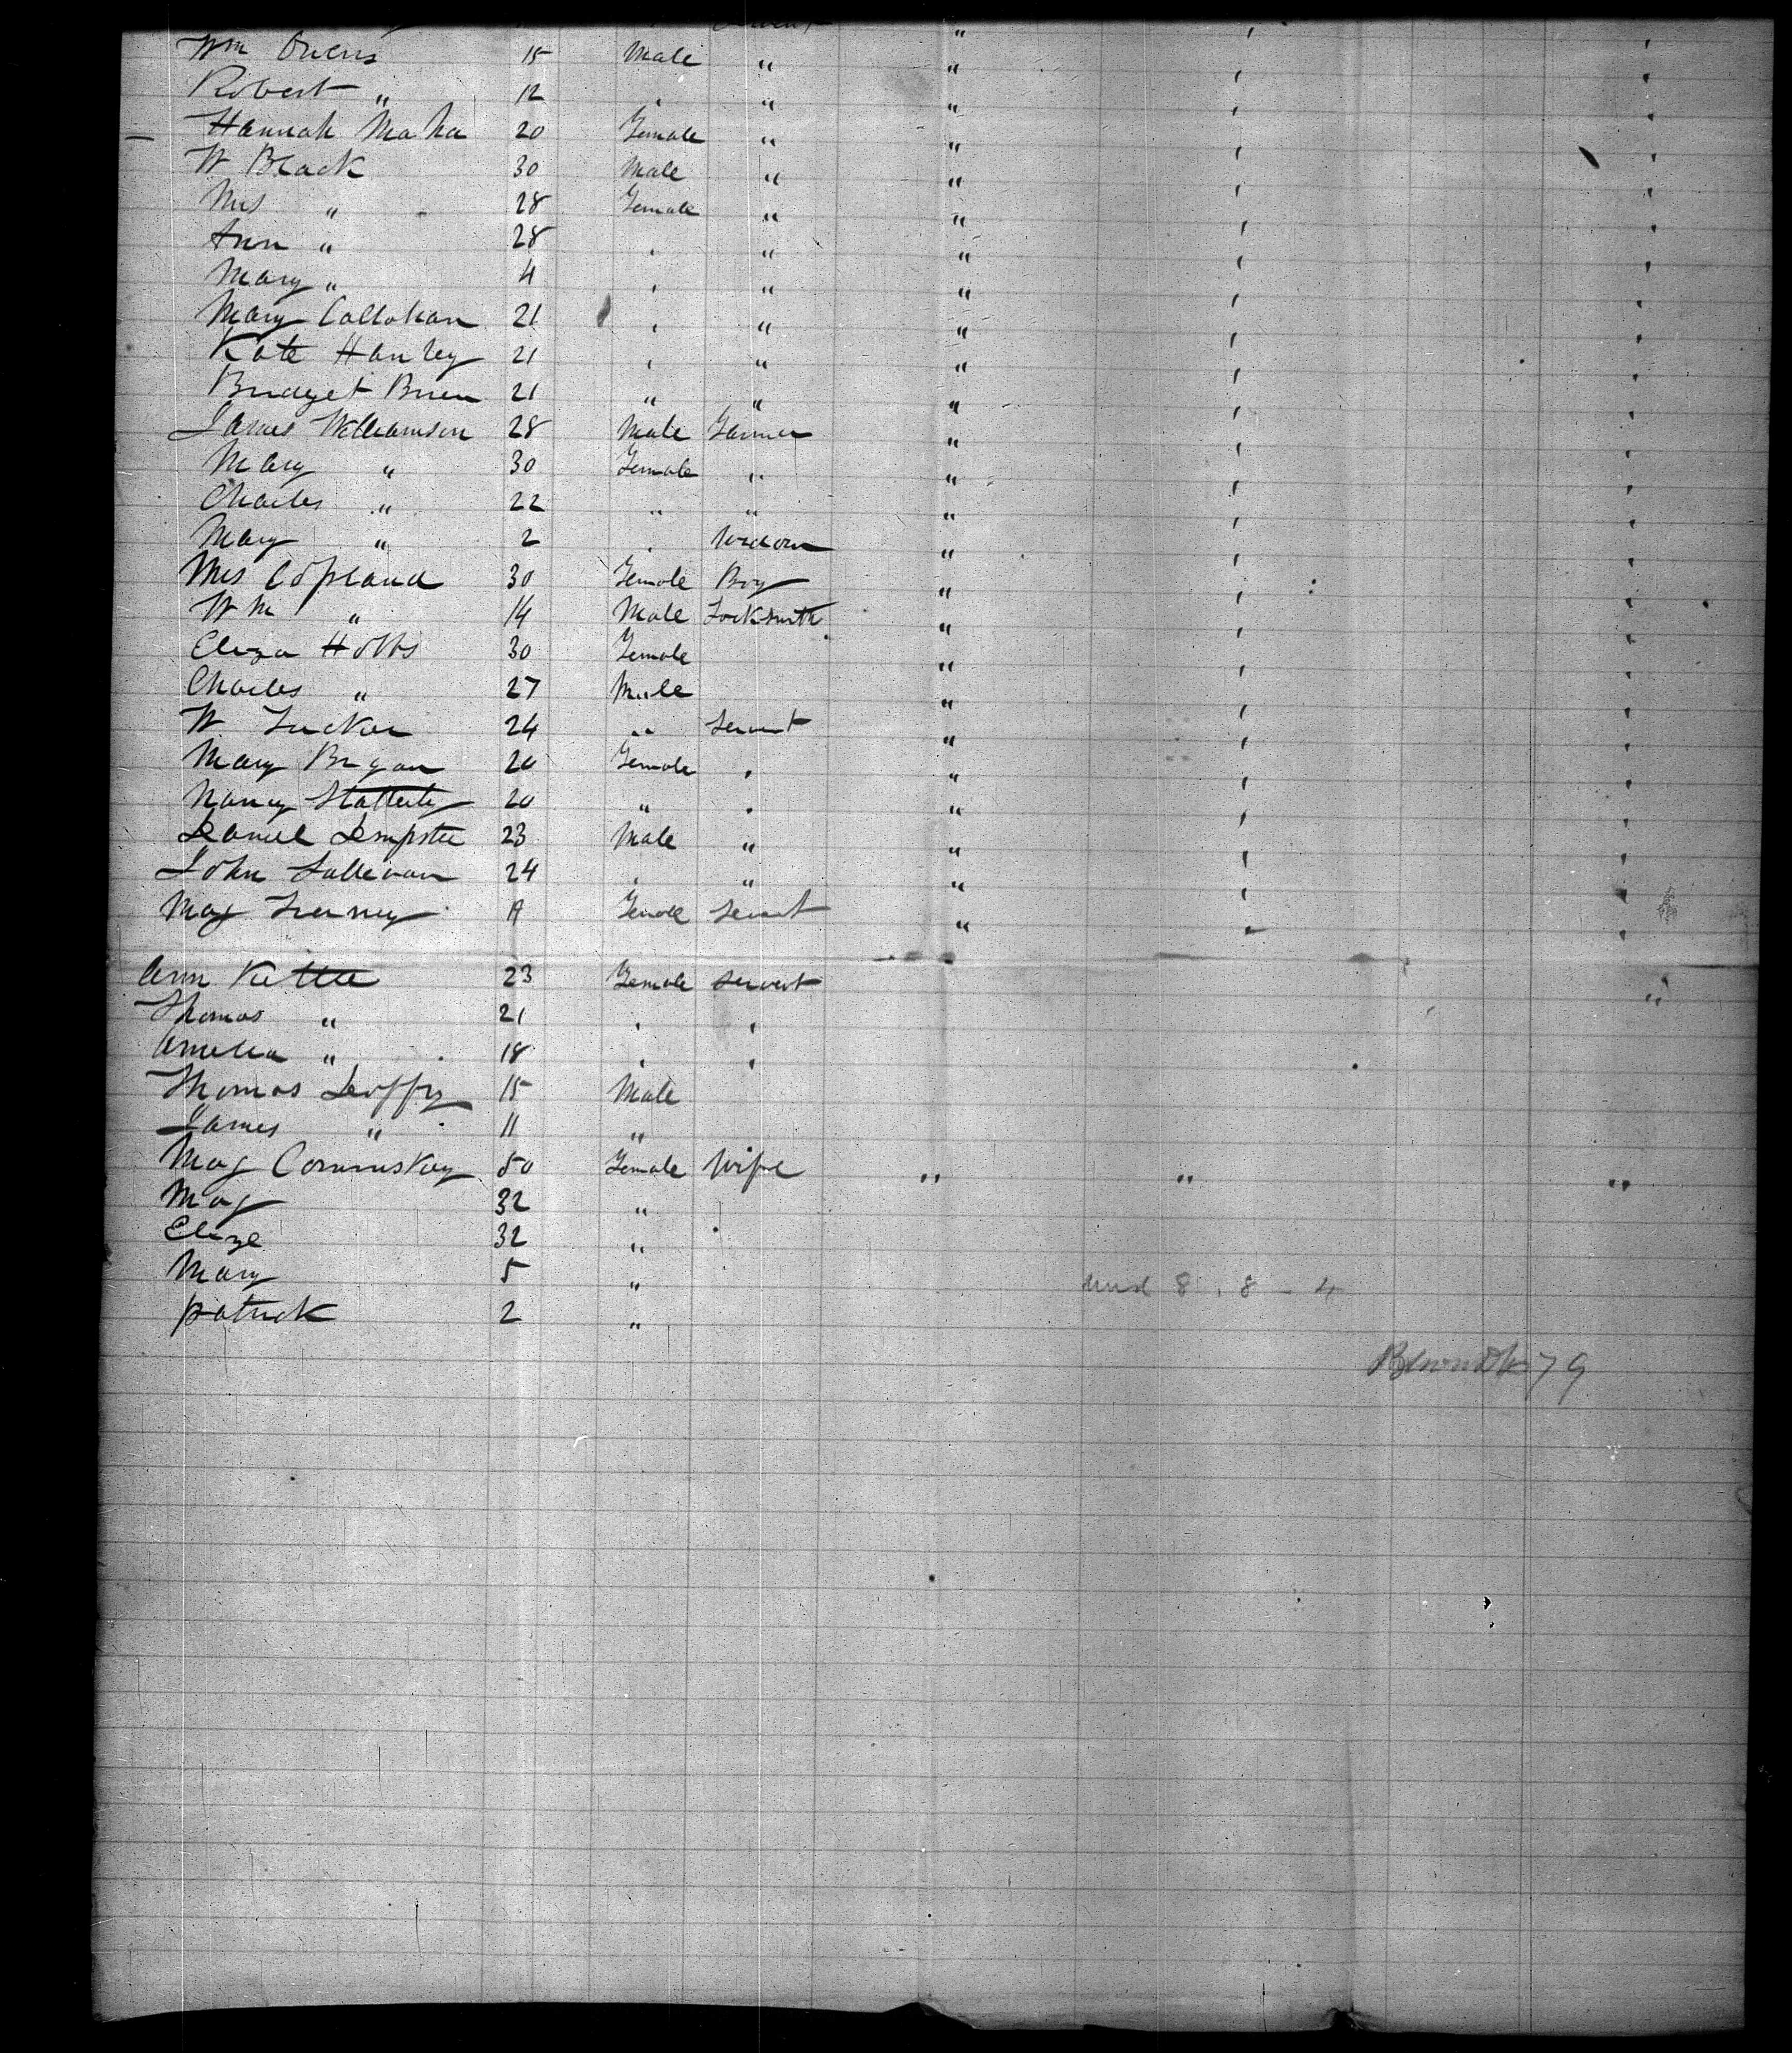 Wm Owens 15 Male " " ' '
Robert " 12 ' " " ' '
Hannah Maha 20 Female " " ' '
W Black 30 Male " " ' '
Mrs " 28 Female " " ' '
Ann " 28 ' " " ' '
Mary " 4 ' " " ' '
Mary Callohan 21 ' " " ' '
Kate Hanley 21 ' " " ' '
Bridget Brien 21 " " " ' '
James Williamson 28 Male Farmer " ' '
Mary " 30 Female " " ' '
Charles " 22 " " " ' '
Mary " 2 ' Widow " ' '
Mrs Copland 30 Female Boy " ' '
Wm " 14 Male Locksmith " ' '
Eliza Hobbs 30 Female " ' '
Charles " 27 Male " ' '
W Tucker 24 " Servent " ' '
Mary Bryan 20 Female ' " ' '
Nancy Slattery 20 " ' " ' '
Daniel Dempster 23 Male " " ' '
John Sullivan 24 ' " " ' '
Mag 19 Female Servent " ' '
Ann Kettle 23 Female servent "
Thomas " 21 ' '
Amelia " 18 ' '
Thomas 15 Male
James " 11 "
Mag Commiskey 50 Female Wife " " "
Mag 32 "
Elize 32 "
Mary 5 "
patrick 2 "
8 . 8 - 4
79